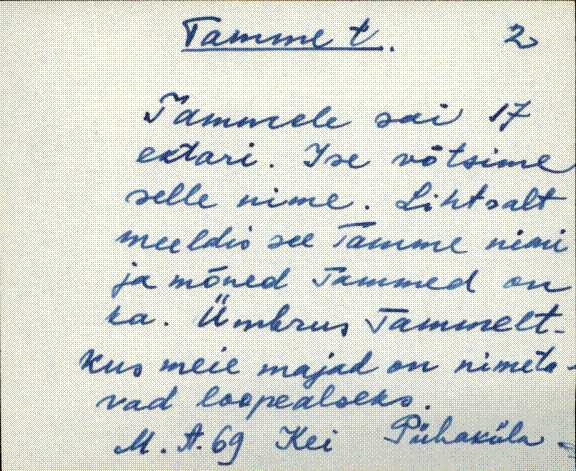 Tamme t. 2
Tammele sai 17
ektari. Ise võtsime
selle nime. Lihtsalt
meeldis see Tamme nimi
ja mõned Tammed on
ka. Ümbrus Tammelt-
kus meie majad on nimeta-
vad loopealseks.
M. A. 69 Kei Pühaküla